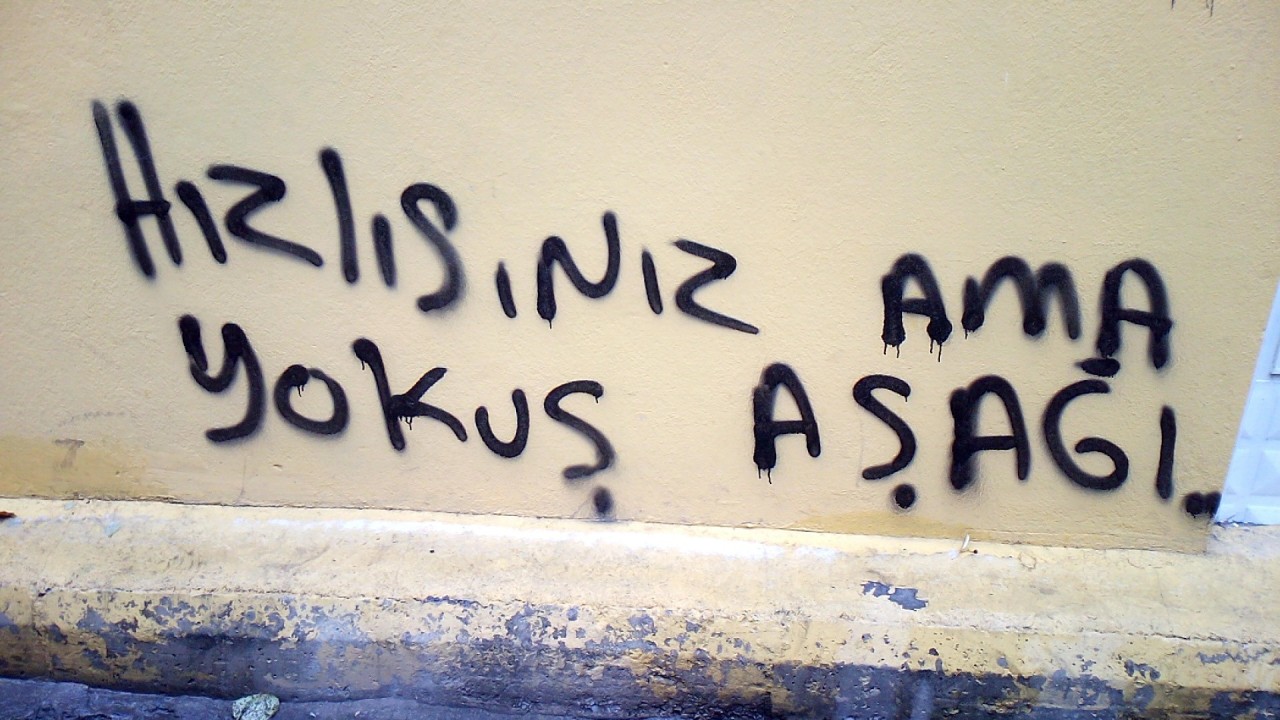 HIZLISINIZ AMA
YOKUŞ AŞAĞI..